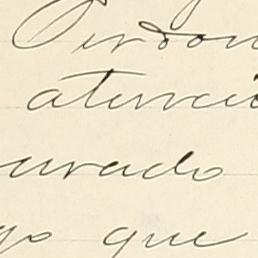 Perdon
atenció
urado
go que